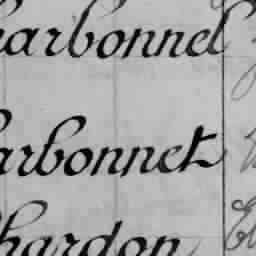 harbonnel
arbonnet
hardon El